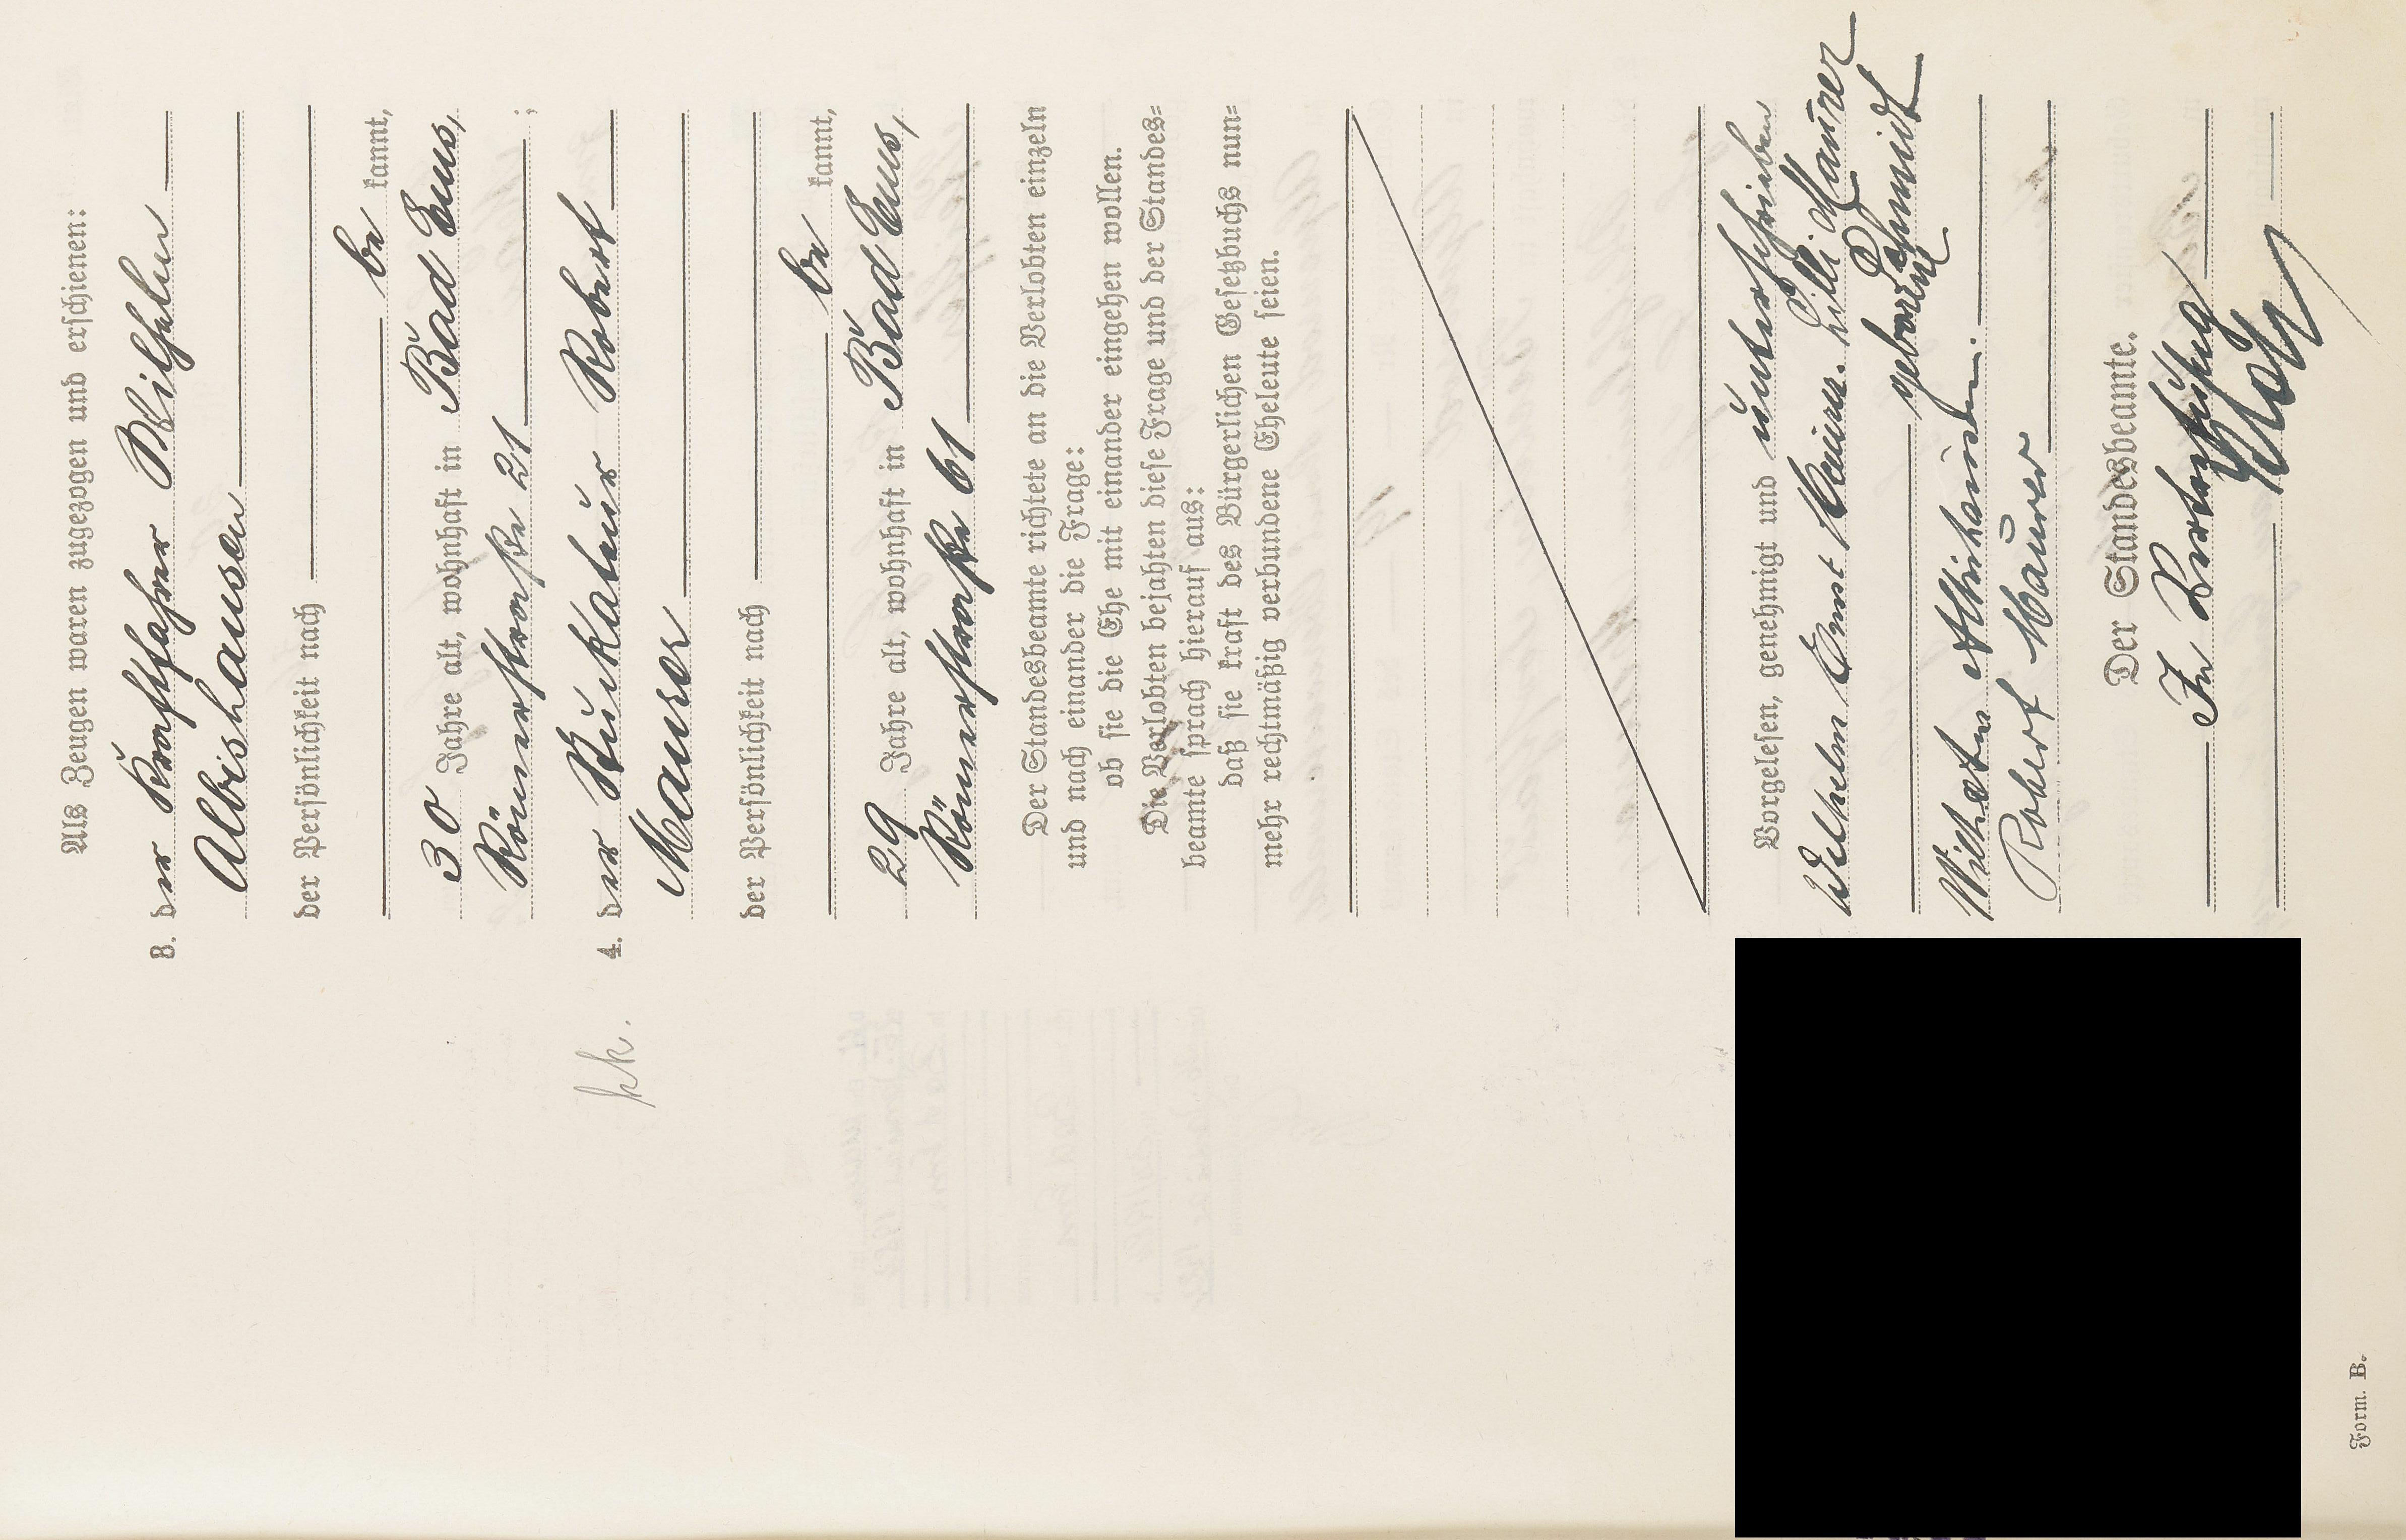 Als Zeugen waren zugezogen und erschienen:
3. der Kraftfahrer Wilhelm
Albishausen
der Persönlichkeit nach
be kannt,
30 Jahre alt, wohnhaft in Bad Ems,
Römerstraße 21 ;
4. der Stukkateur Robert
Maurer
der Persönlichkeit nach
be kannt,
29 Jahre alt, wohnhaft in Bad Ems,
Römerstraße 61
Der Standesbeamte richtete an die Verlobten einzeln
und nach einander die Frage:
ob sie die Ehe mit einander eingehen wollen.
Die Verlobten bejahten diese Frage und der Standes=
beamte sprach hierauf aus:
daß sie kraft des Bürgerlichen Gesetzbuchs nun=
mehr rechtmäßig verbundene Eheleute seien.
Vorgelesen, genehmigt und unterschrieben
Wilhelm Ernst Maurer. Lilli Maurer
geborene Schmidt
Wilhelm Albishausen.
Robert Maurer
Der Standesbeamte.
In Vertretung
Form. B.